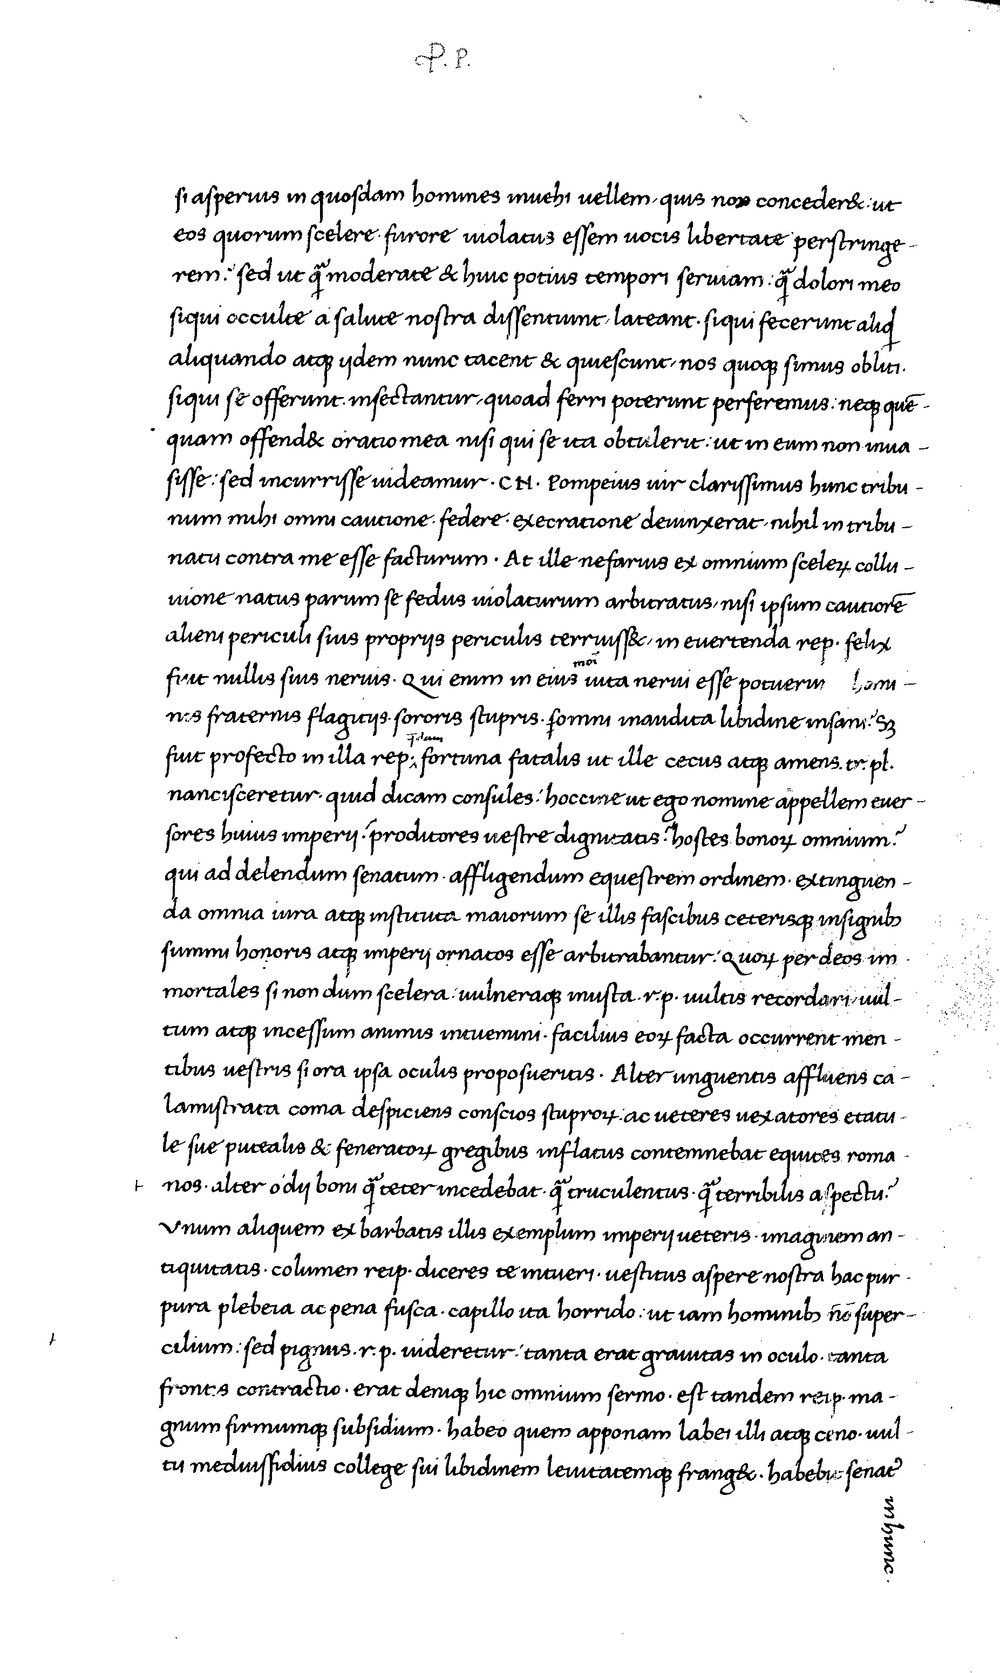 P. P.
si asperius in quosdam homines inuehi uellem, quis non conceder&: ut
eos quorum scelere furore uiolatus essem uocis libertate perstringe-
rem? sed ut q̃ moderate & huic potius tempori seruiam: q̃ dolori meo
siqui occulte a salute nostra dissentiunt, lateant. siqui fecerunt aliq̃d
aliquando atq; ijdem nunc tacent & quiescunt, nos quoq; simus obliti.
siqui se offerunt. insectantur, quoad ferri poterunt perferemus: neq; quē-
quam offend& oratio mea nisi qui se ita obtulerit: ut in eum non inua-
sisse: sed incurrisse uideamur. CN. Pompeius uir clarissimus hunc tribu-
num mihi omni cautione. federe. execratione deuinxerat, nihil in tribu-
natu contra me esse facturum. At ille nefarius ex omnium sceleꝝ collu-
uione natus parum se fedus uiolaturum arbitratus, nisi ipsum cautiorē
alieni periculi suis proprijs periculis terruiss&, in euertenda rep. felix
fuit nullis suis neruis. Qui enim in eius uita nerui esse potuerin homi-
nis fraternis flagitijs. sororis stupris. omni inaudita libidine insani? Sꝫ
fuit profecto in illa rep. q̃dam fortuna fatalis ut ille cecus atq; amens. tr. pl.
nancisceretur. quid dicam consules? hoccine ut ego nomine appellem euer-
sores huius imperij? proditores uestre dignitatis? hostes bonoꝝ omnium?
qui ad delendum senatum. affligendum equestrem ordinem. extinguen-
da omnia iura atq; instituta maiorum se illis fascibus ceterisq; insignib;
summi honoris atq; imperij ornatos esse arbitrabantur? Quoꝝ per deos im
mortales si non dum scelera uulneraq; inusta. r. p. uultis recordari, uul-
tum atq; incessum animis intuemini. facilius eoꝝ facta occurrent men-
tibus uestris si ora ipsa oculis proposueritis. Alter unguentis affluens ca-
lamistrata coma despiciens conscios stuproꝝ. ac ueteres uexatores etatu-
le sue putealis & feneratoꝝ gregibus inflatus contemnebat equites roma-
nos. alter o dij boni q̃ teter incedebat. q̃ truculentus. q̃ terribilis aspectu?
Vnum aliquem ex barbatis illis exemplum imperij ueteris. imaginem an-
tiquitatis. columen reip. diceres te intueri. uestitus aspere nostra hac pur-
pura plebeia ac pena fusca. capillo ita horrido: ut iam hominib; ñ super-
cilium: sed pignus. r. p. uideretur: tanta erat grauitas in oculo. tanta
frontis contractio. erat deniq; hic omnium sermo. est tandem reip. ma-
gnum firmumq; subsidium. habeo quem apponam labei illi atq; ceno. uul-
tu mediussfidius college sui libidinem leuitatemq; frang&. habebit senat9
in hunc.